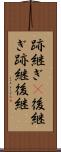 跡継ぎ後継
ぎ跡継後継